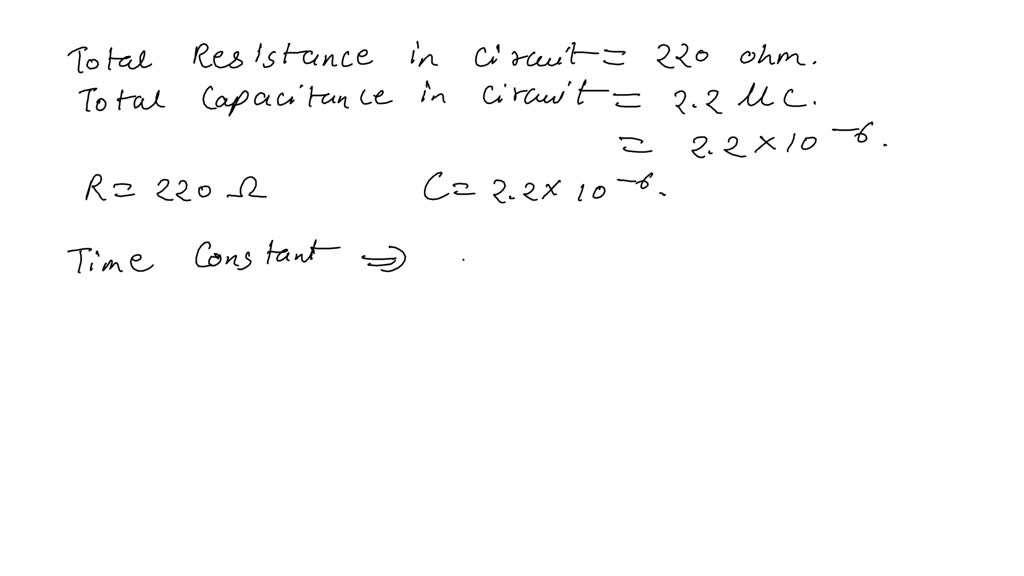 Total Resistance in circuit = 220 ohm.
Total Capacitance in circuit = 2.2 μC.
= 2.2 × 10⁻⁶.
R = 220 Ω C = 2.2 × 10⁻⁶.
Time Constant ⇒